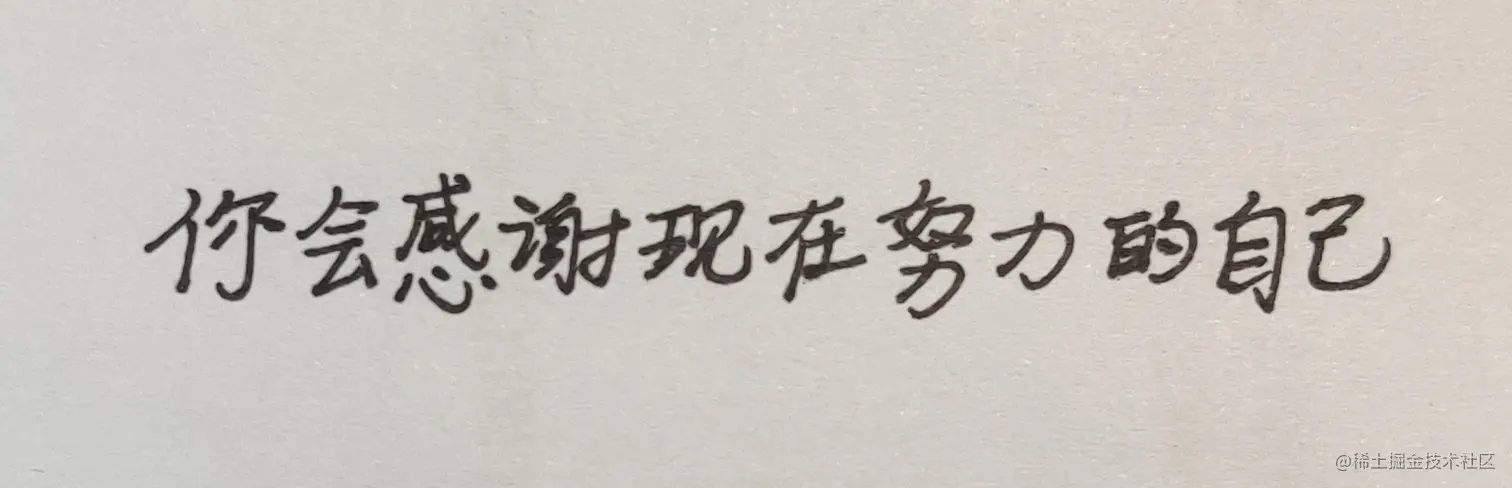 你会感谢现在努力的自己
@稀土掘金技术社区